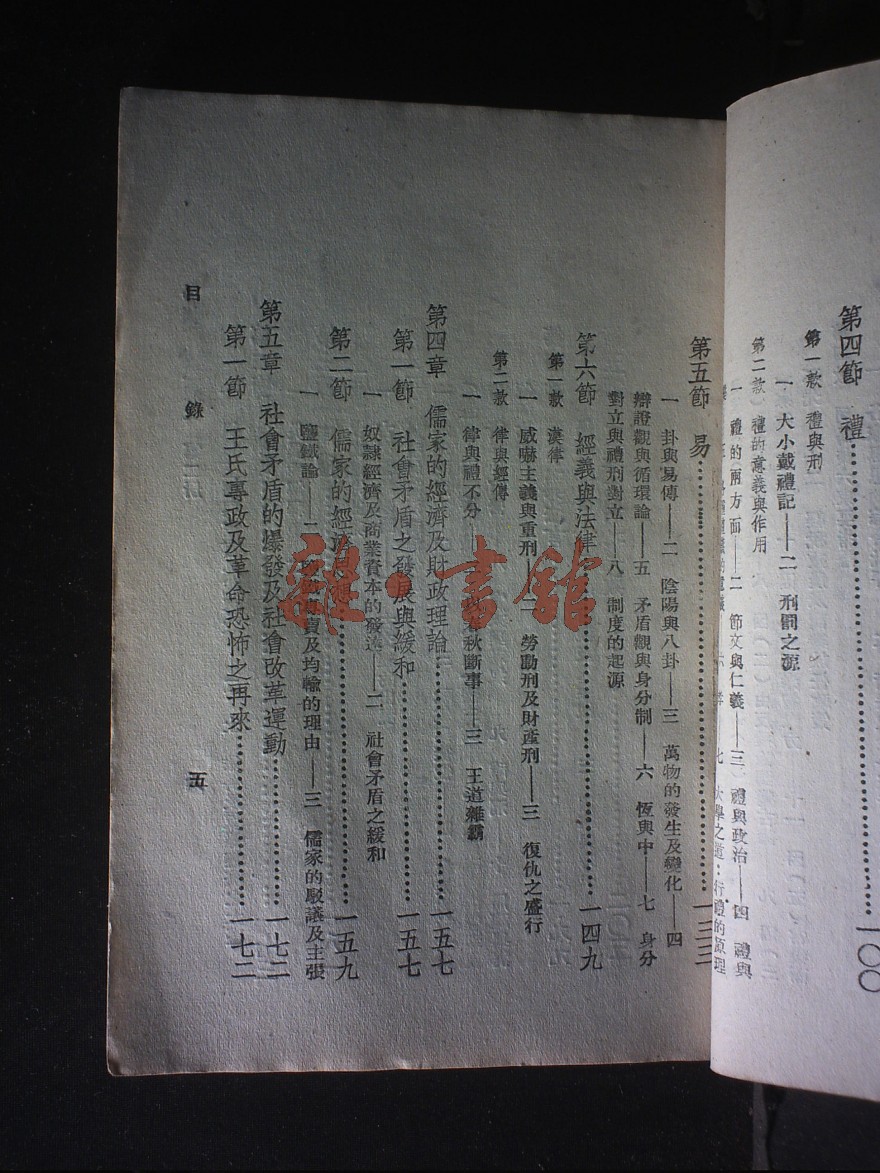 第四節 禮……一〇〇
第一款 禮與刑
一 大小戴禮記——二 刑罰之源
第二款 禮的意義與作用
一 禮的兩方面——二 節文與仁義——三 禮與政治——四 禮與
七 大學之道：行禮的原理
第五節 易……一三三
一 卦與易傳——二 陰陽與八卦——三 萬物的發生及變化——四
辯證觀與循環論——五 矛盾觀與身分制——六 恆與中——七 身分
對立與禮刑對立——八 制度的起源
第六節 經義與法律……一四九
第一款 漢律
一 威嚇主義與重刑——二 勞動刑及財產刑——三 復仇之盛行
第二款 律與經傳
一 律與禮不分——二 以春秋斷事——三 王道雜霸
第四章 儒家的經濟及財政理論……一五七
第一節 社會矛盾之發展與緩和……一五七
一 奴隸經濟及商業資本的發達——二 社會矛盾之緩和
第二節 儒家的經濟思想……一五九
一 鹽鐵論——二 賣及均輸的理由——三 儒家的駁議及主張
第五章 社會矛盾的爆發及社會改革運動……一七二
第一節 王氏專政及革命恐怖之再來……一七二
目 錄
五
雜·書館